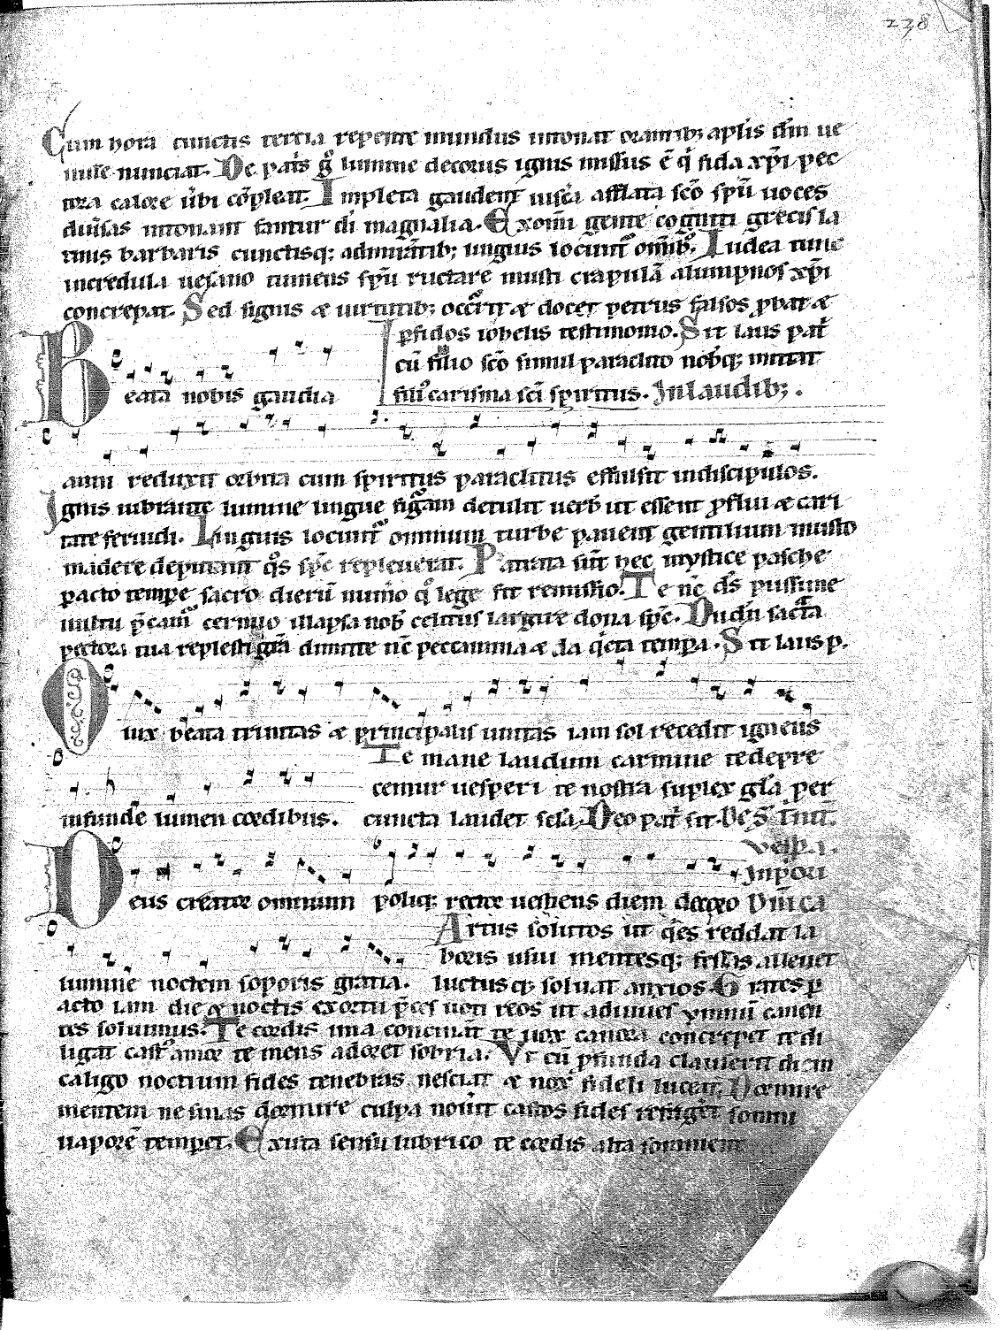 238
Cum hora cunctis tertia repente mundus intonat orantib; aplis dm ue
nisse nunciat. De patis g lumine decorus ignis missus ē q̄ fida xp̄i pec
tora calore ūbi cōpleat. Impleta gaudent uiscā afflata sc̄o sp̄u uoces
duīsas intonant fantur dī magnalia. Ex omīū gente cogniti grecis la
tinis barbaris cunctisq; admirātib; linguis locunt omīb;. Iudea tunc
incredula uesano tumens sp̄u ructare musti crapulā alumpnos xp̄i
concrepat. Sed signis æ uirtutib; occ̄rit æ docet petrus falsos p̱bat æ
p̱fidos iohelis testimonio. Sit laus pat̄
cū filio sc̄o simul paraclito nob̄q; mittat
filiꝰ carisma sc̄i spiritus. In laudib;.
Beata nobis gaudia
anni reduxit orbita cum spiritus paraclitus effulsit indiscipulos.
Ignis uibrante lumine lingue figᵃam detulit uerb̄ ut essent p̱flui æ cari
tate feruidi. Linguis locunt omnium turbe pauent gentilium musto
madere deputant q̄s sp̄c repleuerat. Patrata sūt hec mystice pasche
p̱acto tempe sacro dierū numō q̄ lege fit remissio. Te nc̄ dś piissime
uultu p̄cam̄ cernuo illapsa nob̄ celitus largire dona sp̄c. Dudū sacᵃta
pectora tua replesti grā dimitte nc̄ peccamina æ da q̄eta tempa. Sit laus p.
O lux beata trinitas æ principalis unitas iam sol recedit igneus
Te mane laudum carmine te depre
cemur uesperi te nostra suplex glā per
infunde lumen cordibus. cuncta laudet secla. Deo pat̄ sit.
Vesp̄.
Deus creator omnium poliq; rector uestiens diem decoro
Artus solutos ut q̄es reddat la
boris usui mentesq; fessas alleuet
lumine noctem soporis gratia. luctusq; soluat anxios. Grates p̱
acto iam die æ noctis exortu p̄ces uoti reos ut adiuues ymnū canen
tes soluimus. Te cordis ima concinat te uox canora concrepet te di
ligat castꝰ amor te mens adoret sobria. Vt cū p̱funda clauserit diem
caligo noctium fides tenebras nesciat æ nox fideli luceat. Dormire
mentem ne sinas dormire culpa nouit castos fides refriḡet somni
uaporē tempet. Exuta sensu lubrico te cordis alta somnient